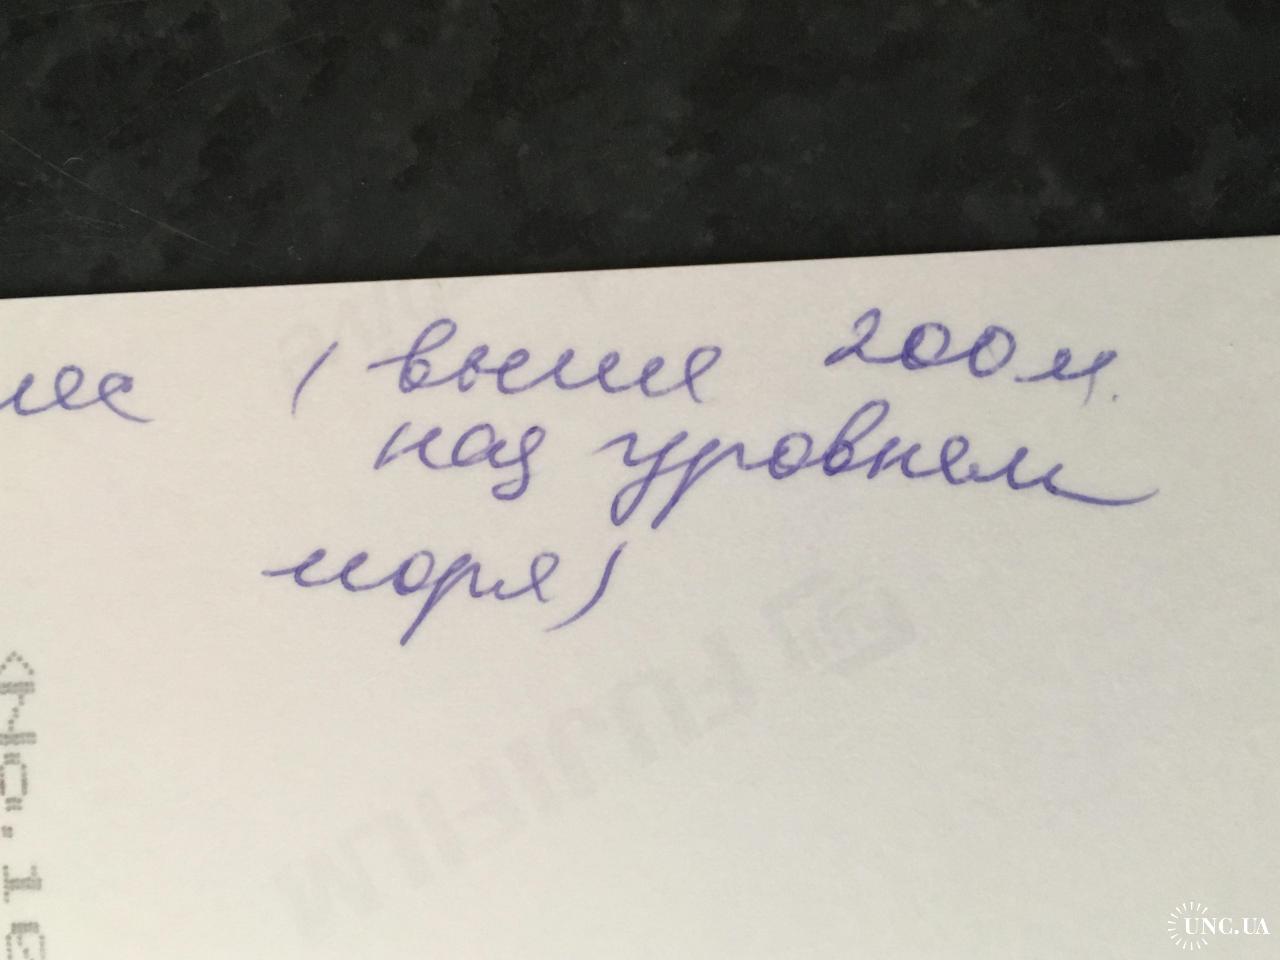 (выше 200 м.
над уровнем
моря)
<No.10
UNC.UA